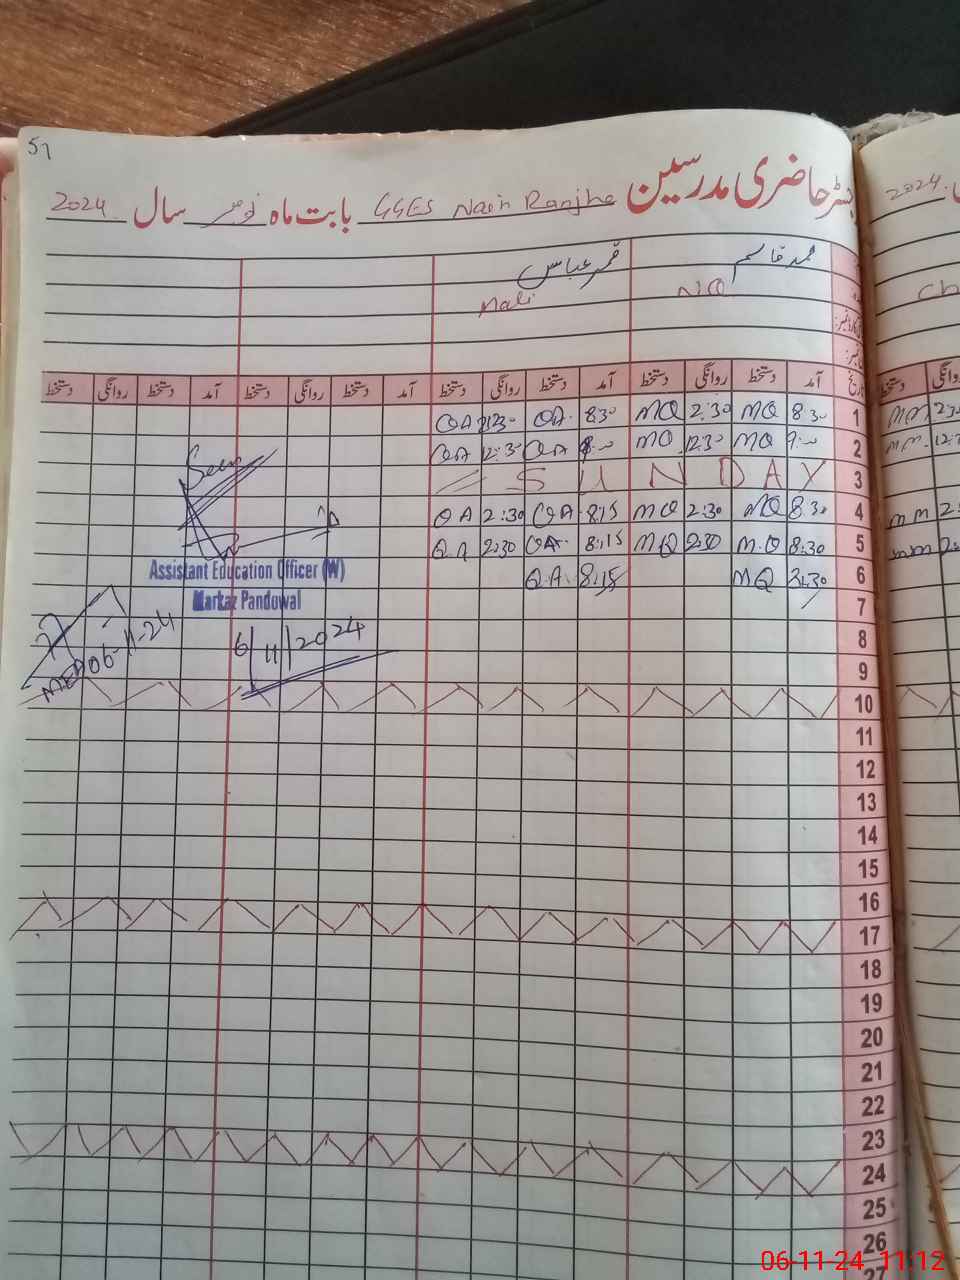 51
رجسٹر حاضری مدرسین GGES Nain Ranjha بابت ماہ نومبر سال 2024
2024
محمد قاسم قمر عباس
NQ Mali
Ch
تاریخ آمد دستخط روانگی دستخط آمد دستخط روانگی دستخط آمد دستخط روانگی دستخط آمد دستخط روانگی دستخط
روانگی دستخط
1 8:30 MQ 2:30 MQ 8:30 QA QA
2 9:00 MQ 12:30 MQ QA 12:30 QA
3 SUNDAY
4 8:30 MQ 2:30 MQ 8:15 QA 2:30 QA
5 8:30 M.Q 2:30 MQ 8:15 QA 2:30 Q.A
6 MQ 8:15 Q.A
7
8
9
10
11
12
13
14
15
16
17
18
19
20
21
22
23
24
25
26
27
MM
MM 12:
MM 2:
MM 2:
Assistant Education Officer (W)
Markaz Pandowal
6/11/2024
MEA 06-11-24
06-11-24 11:12